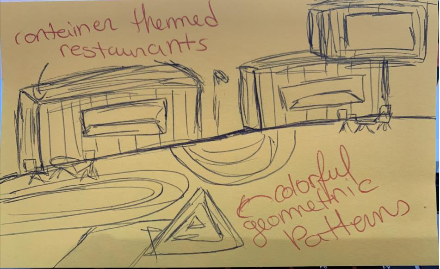 container themed
restaurants
colorful
geometric
Patterns.